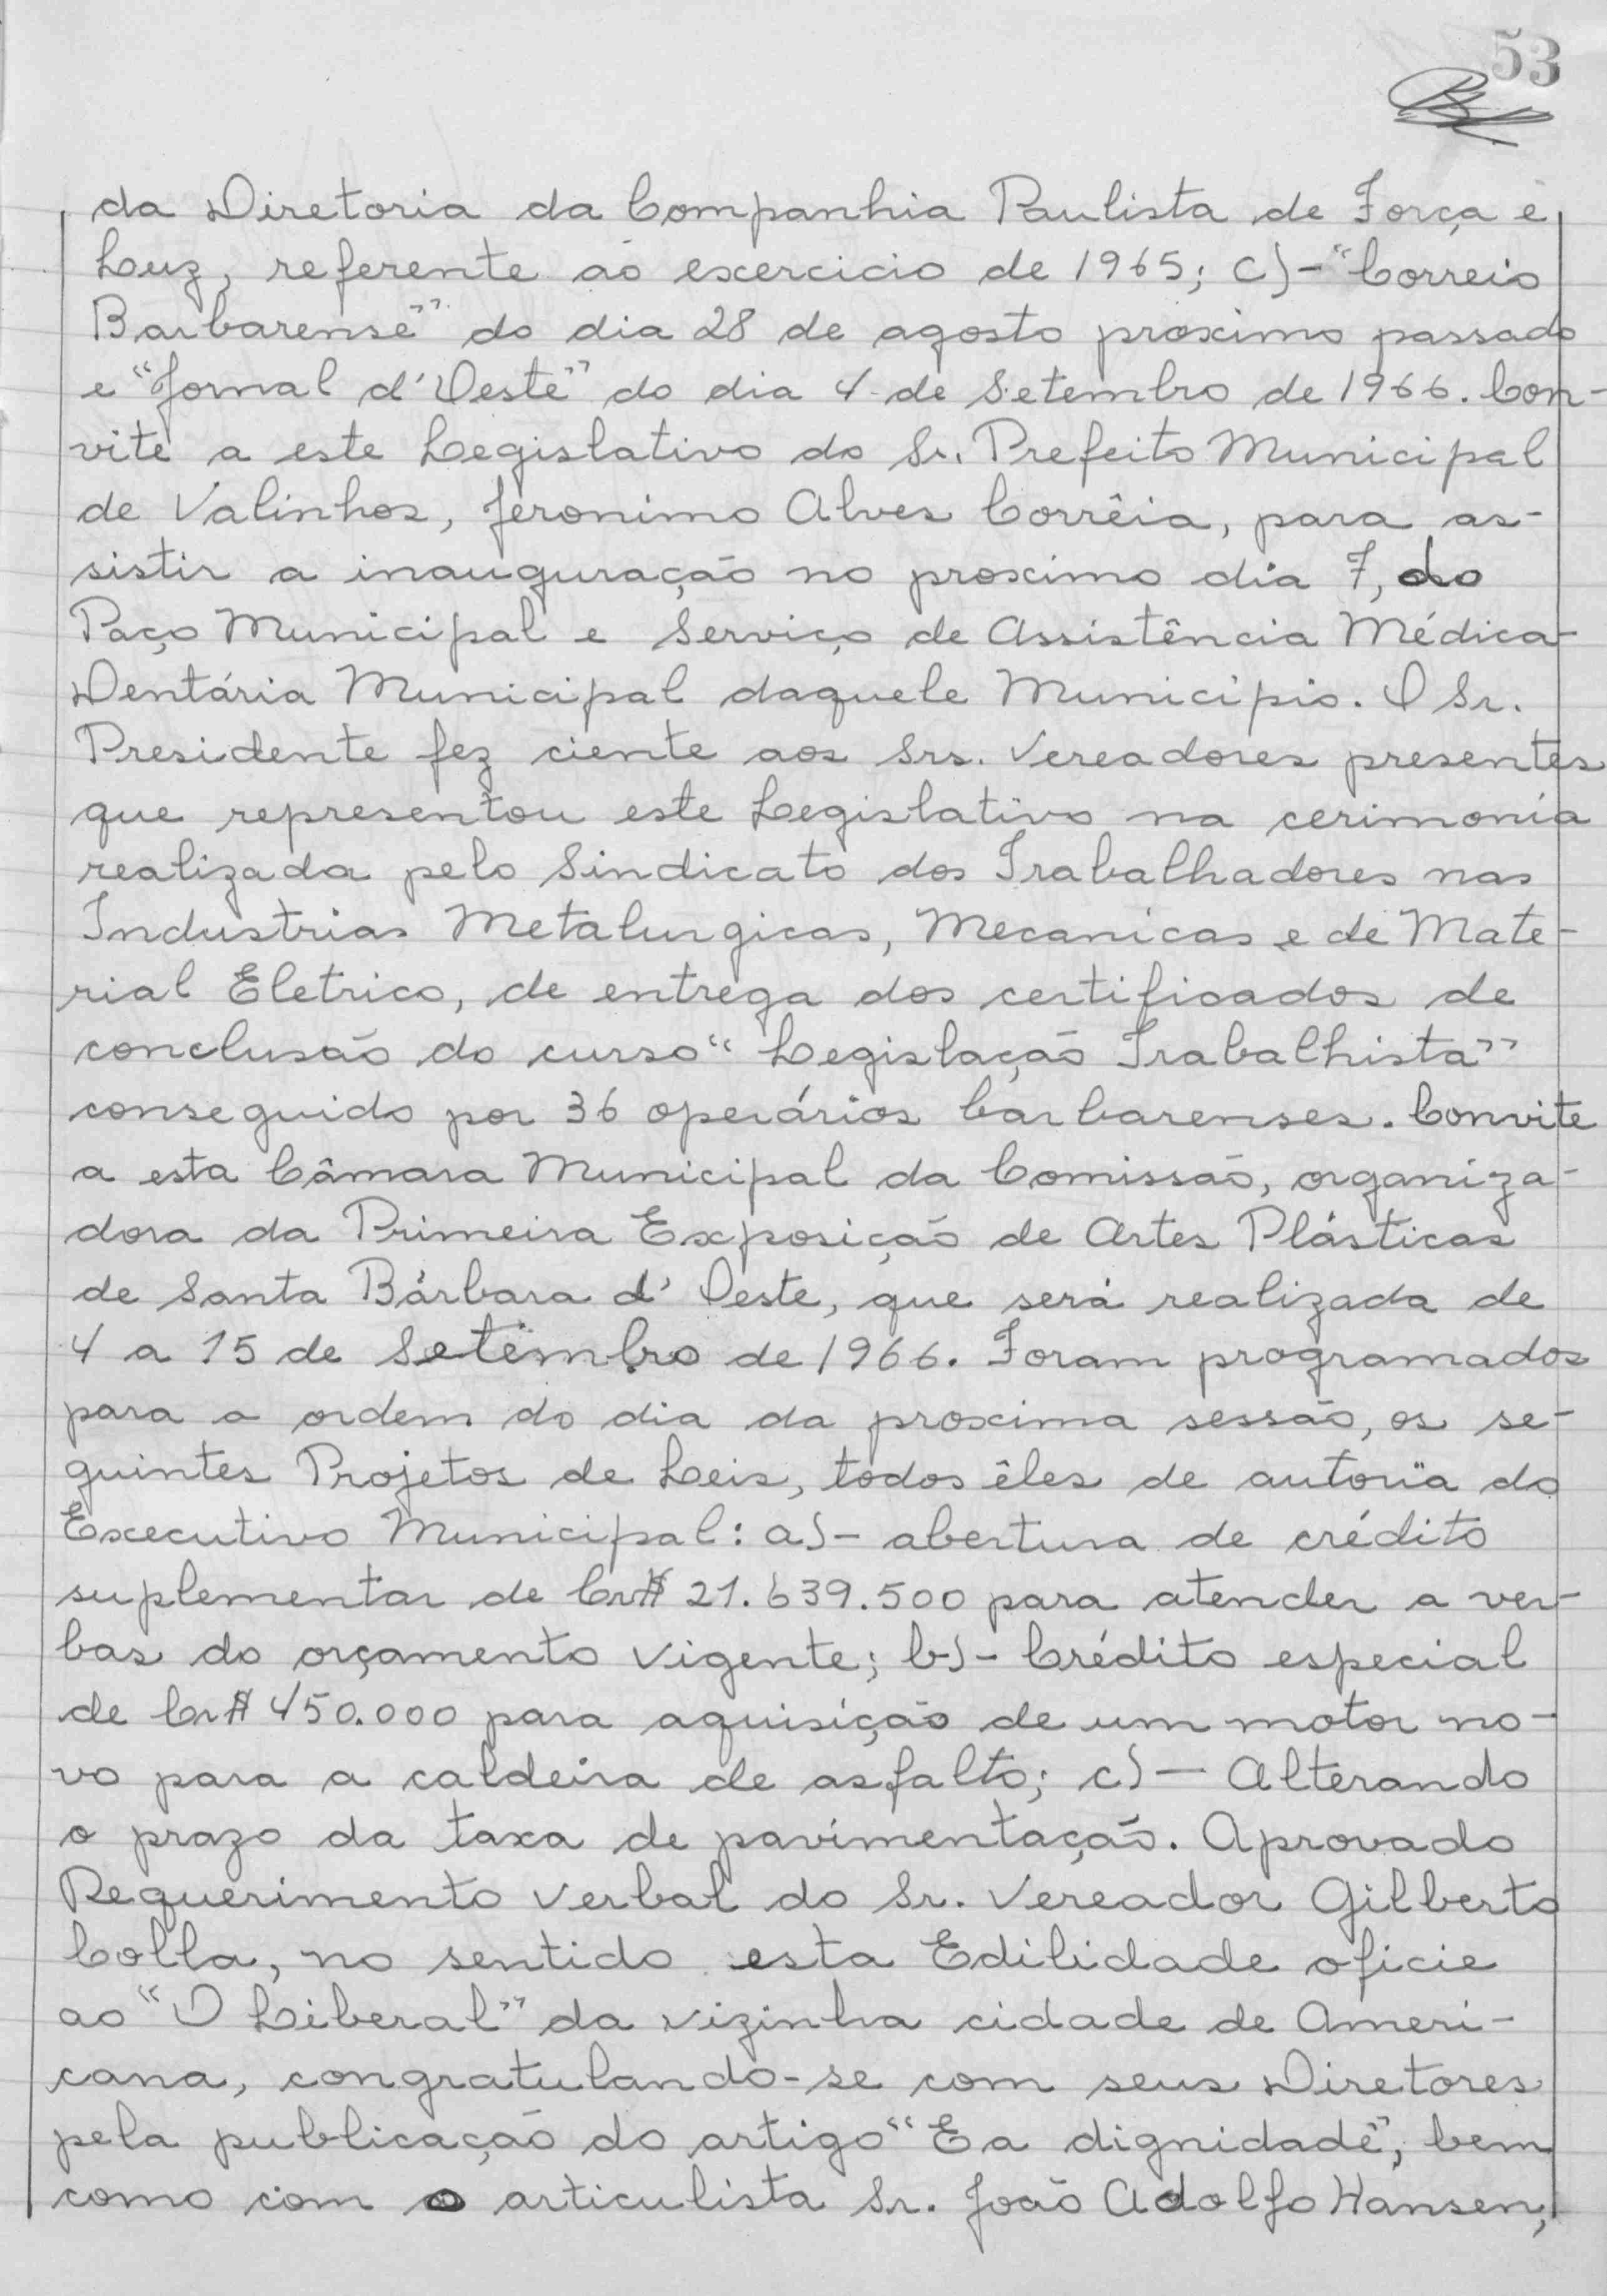 53
da Diretoria da Companhia Paulista de Força e
Luz, referente ao exercicio de 1965; c)- "Correio
Barbarense" do dia 28 de agosto proximo passado
e "Jornal d'Oeste" do dia 4 de Setembro de 1966. Con-
vite a este Legislativo do Sr. Prefeito Municipal
de Valinhos, Jeronimo Alves Corrêia, para as-
sistir a inauguração no proximo dia 7, do
Paço Municipal e Serviço de Assistência Médica-
Dentária Municipal daquele Municipio. O Sr.
Presidente fez ciente aos Srs. Vereadores presentes
que representou este Legislativo na cerimonia
realizada pelo Sindicato dos Trabalhadores nas
Industrias Metalurgicas, Mecanicas e de Mate-
rial Eletrico, de entrega dos certificados de
conclusão do curso "Legislação Trabalhista"
conseguido por 36 operários barbarenses. Convite
a esta Câmara Municipal da Comissão, organiza-
dora da Primeira Exposição de Artes Plásticas
de Santa Bárbara d'Oeste, que será realizada de
4 a 15 de Setembro de 1966. Foram programados
para a ordem do dia da proxima sessão, os se-
guintes Projetos de Leis, todos êles de autoria do
Executivo Municipal: a)- abertura de crédito
suplementar de Cr$ 21.639.500 para atender a ver-
bas do orçamento vigente; b)- Crédito especial
de Cr$ 450.000 para aquisição de um motor no-
vo para a caldeira de asfalto; c)- Alterando
o prazo da taxa de pavimentação. Aprovado
Requerimento verbal do Sr. Vereador Gilberto
Colla, no sentido esta Edilidade oficie
ao "O Liberal" da vizinha cidade de Ameri-
cana, congratulando-se com seus Diretores
pela publicação do artigo "E a dignidade", bem
como com o articulista Sr. João Adolfo Hansen,